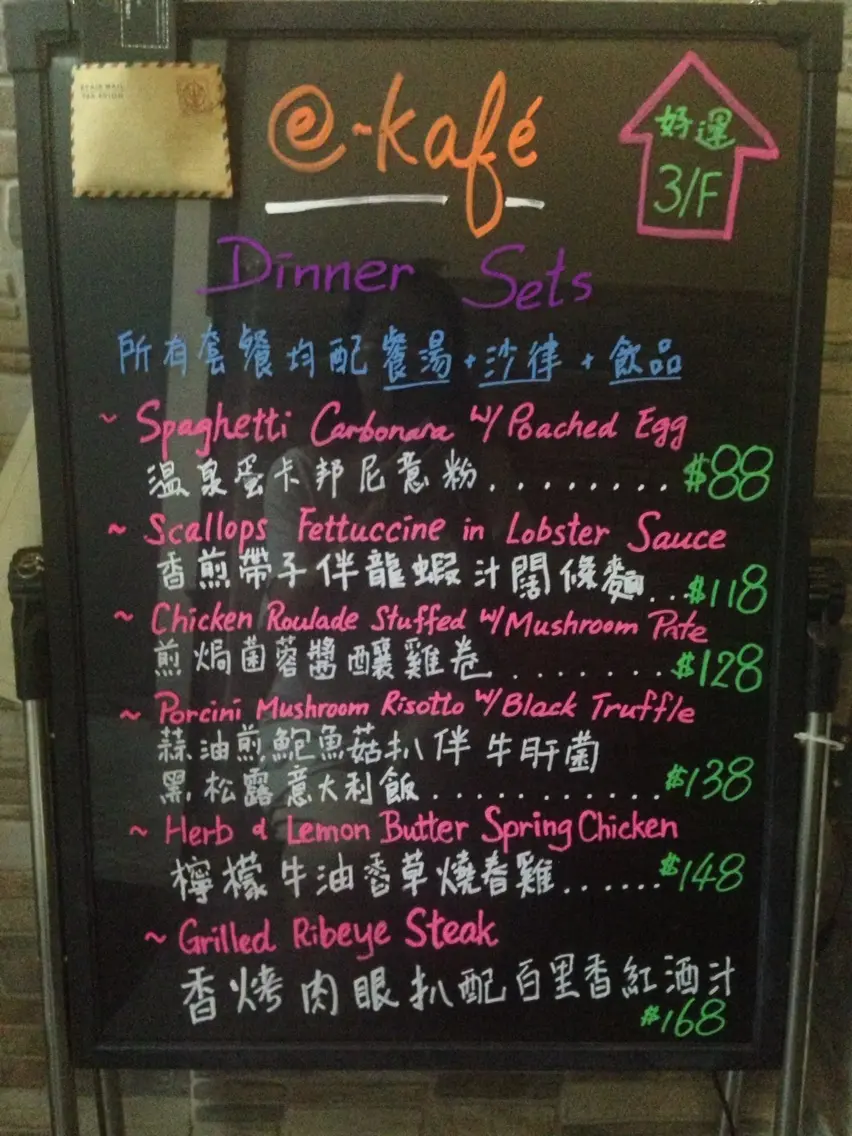 e~kafé
好運
3/F
Dinner Sets
所有套餐均配餐湯+沙律+飲品
~ Spaghetti Carbonara w/ Poached Egg
溫泉蛋卡邦尼意粉......... $88
~ Scallops Fettuccine in Lobster Sauce
香煎帶子伴龍蝦汁闊條麵...$118
~ Chicken Roulade Stuffed w/ Mushroom Pate
煎焗菌蓉醬釀雞卷........$128
~ Porcini Mushroom Risotto w/ Black Truffle
蒜油煎鮑魚菇扒伴牛肝菌
黑松露意大利飯............$138
~ Herb & Lemon Butter Spring Chicken
檸檬牛油香草燒春雞......$148
~ Grilled Ribeye Steak
香烤肉眼扒配百里香紅酒汁
$168